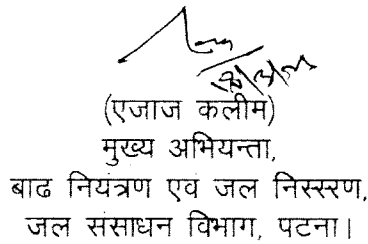 (एजाज कलीम)
मुख्य अभियन्ता,
बाढ नियंत्रण एवं जल निस्स्रण,
जल संसाधन विभाग, पटना।